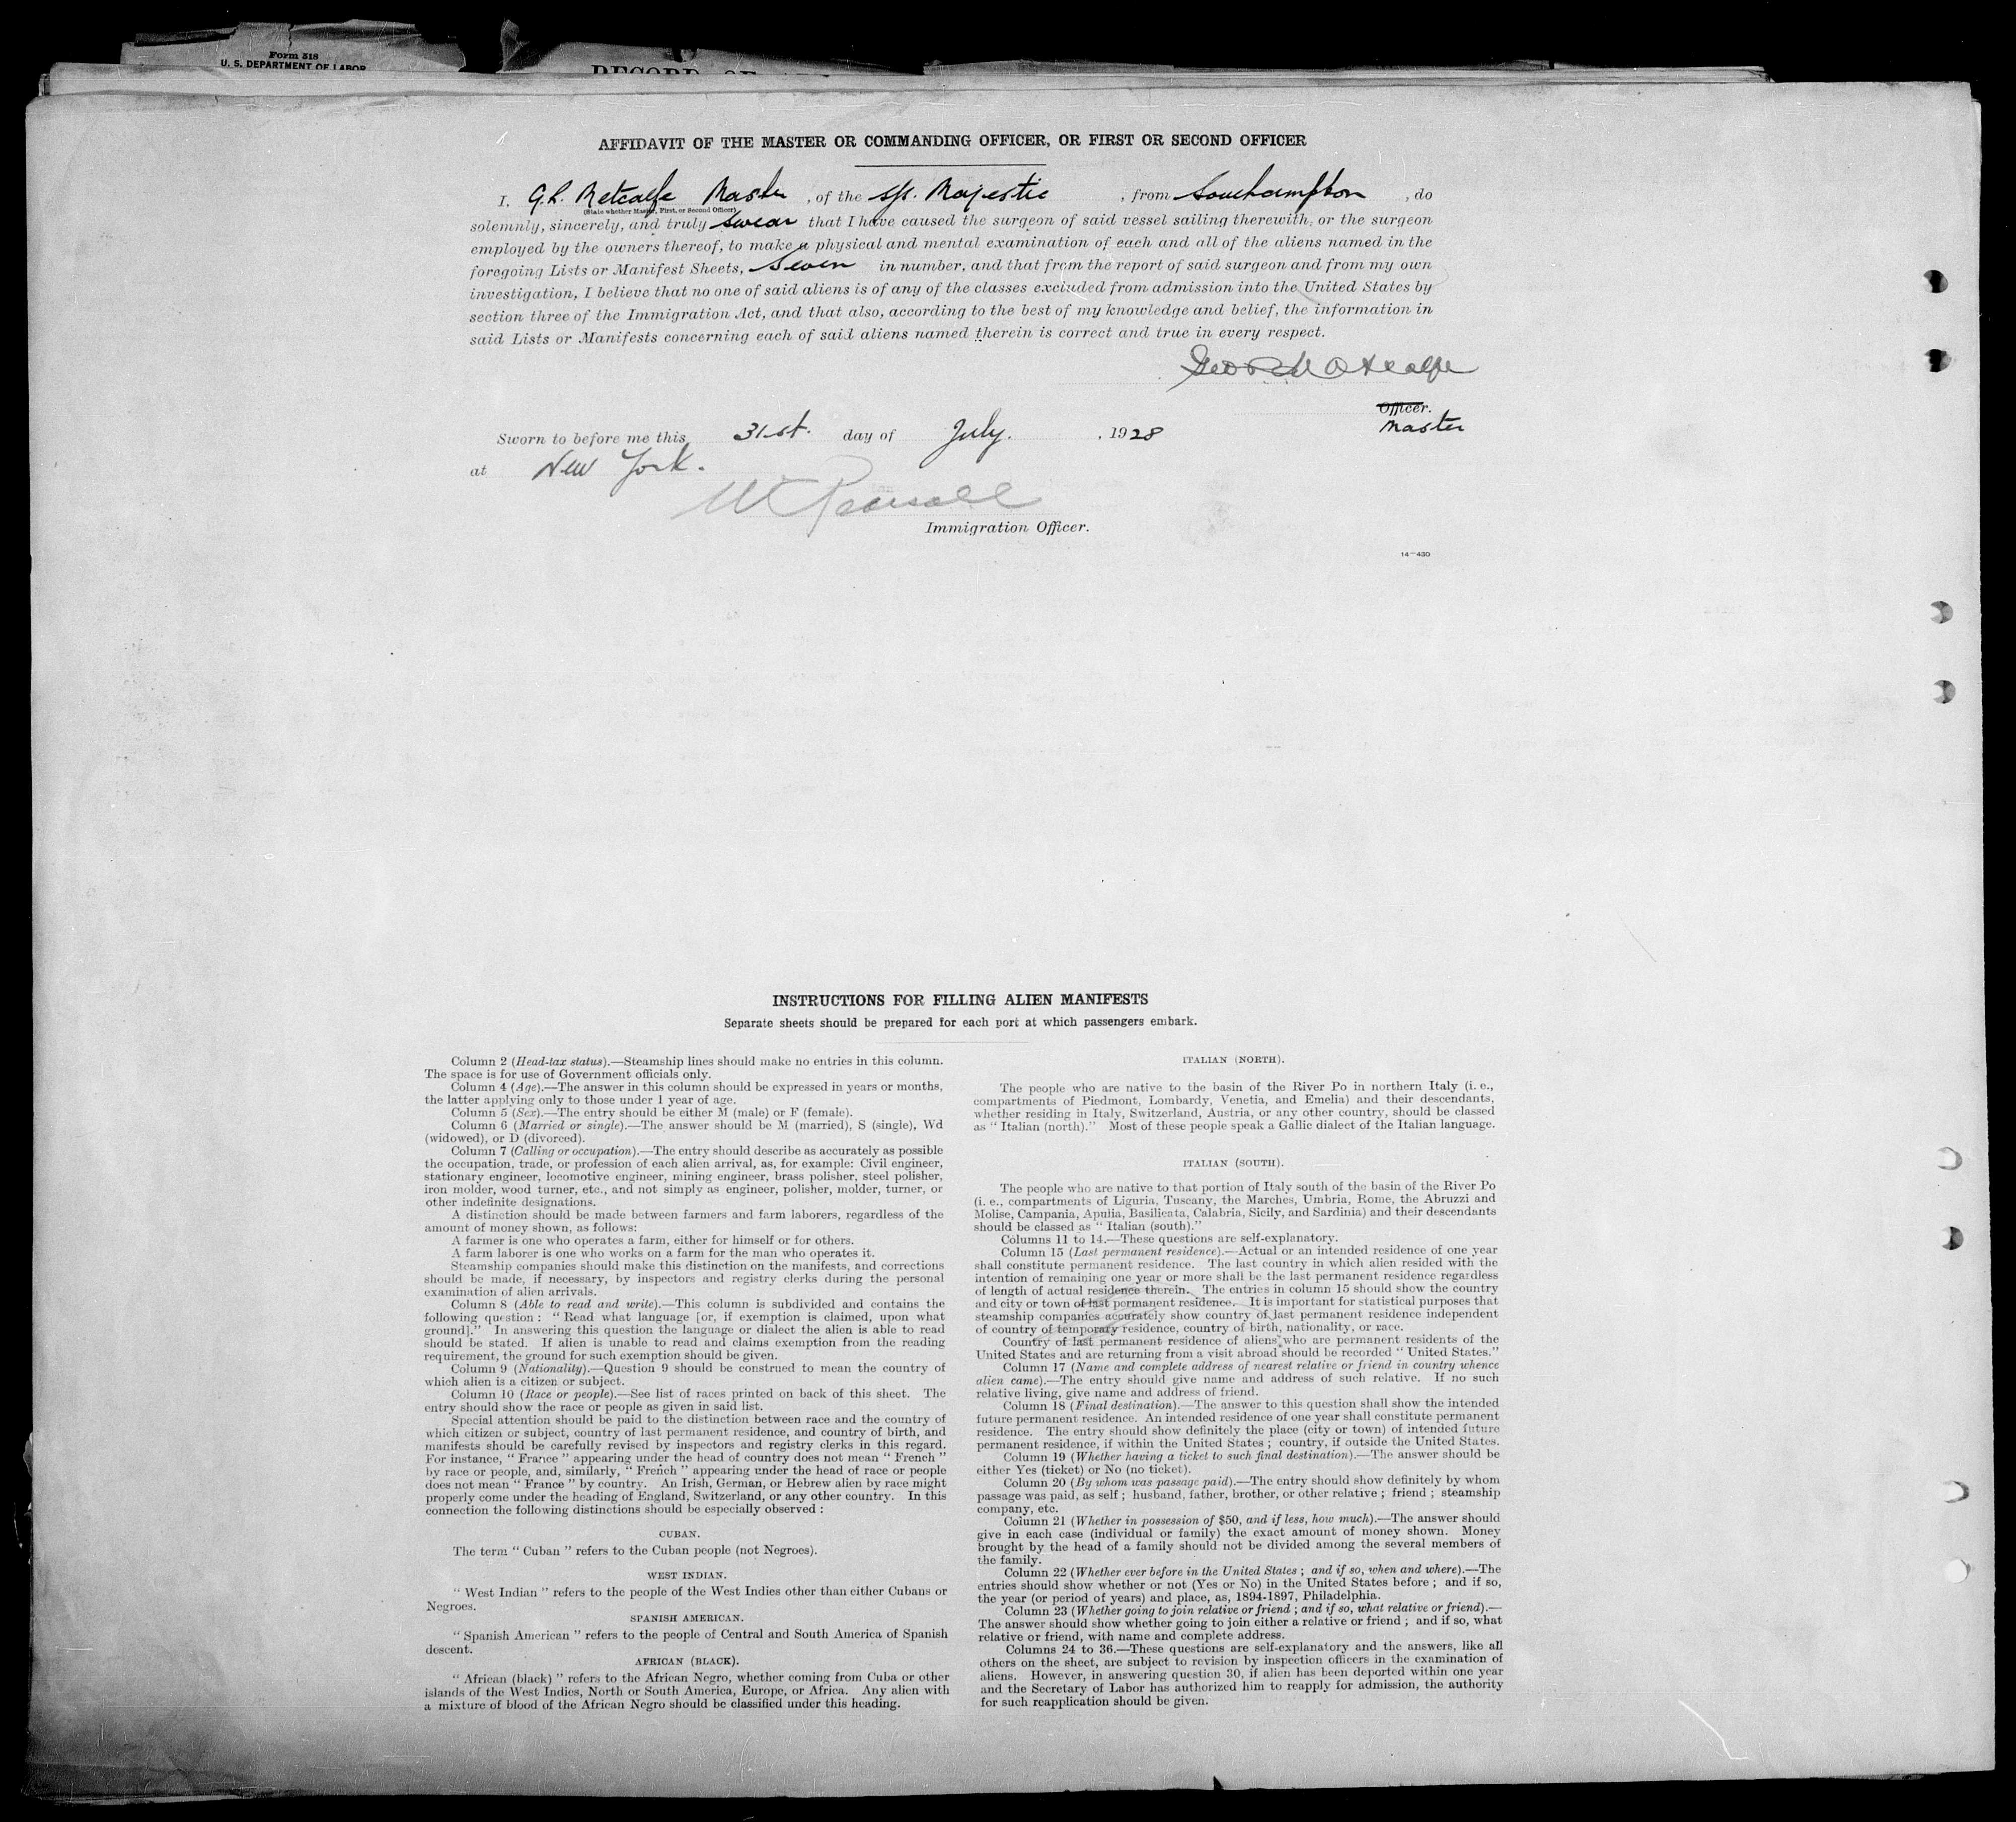 Form 518
U. S. DEPARTMENT OF LABOR
RECORD OF
AFFIDAVIT OF THE MASTER OR COMMANDING OFFICER, OR FIRST OR SECOND OFFICER
I, G.R. Metcalfe Master, of the s/s. Majestic, from Southampton, do
(State whether Master, First, or Second Officer)
solemnly, sincerely, and truly swear that I have caused the surgeon of said vessel sailing therewith, or the surgeon
employed by the owners thereof, to make a physical and mental examination of each and all of the aliens named in the
foregoing Lists or Manifest Sheets, Seven in number, and that from the report of said surgeon and from my own
investigation, I believe that no one of said aliens is of any of the classes excluded from admission into the United States by
section three of the Immigration Act, and that also, according to the best of my knowledge and belief, the information in
said Lists or Manifests concerning each of said aliens named therein is correct and true in every respect.
Geo R Metcalfe
Officer.
Master
Sworn to before me this 31st. day of July. , 1928
at New York.
Immigration Officer.
14—430
INSTRUCTIONS FOR FILLING ALIEN MANIFESTS
Separate sheets should be prepared for each port at which passengers embark.
Column 2 (Head-tax status).—Steamship lines should make no entries in this column.
The space is for use of Government officials only.
Column 4 (Age).—The answer in this column should be expressed in years or months,
the latter applying only to those under 1 year of age.
Column 5 (Sex).—The entry should be either M (male) or F (female).
Column 6 (Married or single).—The answer should be M (married), S (single), Wd
(widowed), or D (divorced).
Column 7 (Calling or occupation).—The entry should describe as accurately as possible
the occupation, trade, or profession of each alien arrival, as, for example: Civil engineer,
stationary engineer, locomotive engineer, mining engineer, brass polisher, steel polisher,
iron molder, wood turner, etc., and not simply as engineer, polisher, molder, turner, or
other indefinite designations.
A distinction should be made between farmers and farm laborers, regardless of the
amount of money shown, as follows:
A farmer is one who operates a farm, either for himself or for others.
A farm laborer is one who works on a farm for the man who operates it.
Steamship companies should make this distinction on the manifests, and corrections
should be made, if necessary, by inspectors and registry clerks during the personal
examination of alien arrivals.
Column 8 (Able to read and write).—This column is subdivided and contains the
following question : “ Read what language [or, if exemption is claimed, upon what
ground].” In answering this question the language or dialect the alien is able to read
should be stated. If alien is unable to read and claims exemption from the reading
requirement, the ground for such exemption should be given.
Column 9 (Nationality).—Question 9 should be construed to mean the country of
which alien is a citizen or subject.
Column 10 (Race or people).—See list of races printed on back of this sheet. The
entry should show the race or people as given in said list.
Special attention should be paid to the distinction between race and the country of
which citizen or subject, country of last permanent residence, and country of birth, and
manifests should be carefully revised by inspectors and registry clerks in this regard.
For instance, “ France ” appearing under the head of country does not mean “ French ”
by race or people, and, similarly, “ French ” appearing under the head of race or people
does not mean “ France ” by country. An Irish, German, or Hebrew alien by race might
properly come under the heading of England, Switzerland, or any other country. In this
connection the following distinctions should be especially observed :
CUBAN.
The term “ Cuban ” refers to the Cuban people (not Negroes).
WEST INDIAN.
“ West Indian ” refers to the people of the West Indies other than either Cubans or
Negroes.
SPANISH AMERICAN.
“ Spanish American ” refers to the people of Central and South America of Spanish
descent.
AFRICAN (BLACK).
“ African (black) ” refers to the African Negro, whether coming from Cuba or other
islands of the West Indies, North or South America, Europe, or Africa. Any alien with
a mixture of blood of the African Negro should be classified under this heading.
ITALIAN (NORTH).
The people who are native to the basin of the River Po in northern Italy (i. e.,
compartments of Piedmont, Lombardy, Venetia, and Emelia) and their descendants,
whether residing in Italy, Switzerland, Austria, or any other country, should be classed
as “ Italian (north).” Most of these people speak a Gallic dialect of the Italian language.
ITALIAN (SOUTH).
The people who are native to that portion of Italy south of the basin of the River Po
(i. e., compartments of Liguria, Tuscany, the Marches, Umbria, Rome, the Abruzzi and
Molise, Campania, Apulia, Basilicata, Calabria, Sicily, and Sardinia) and their descendants
should be classed as “ Italian (south).”
Columns 11 to 14.—These questions are self-explanatory.
Column 15 (Last permanent residence).—Actual or an intended residence of one year
shall constitute permanent residence. The last country in which alien resided with the
intention of remaining one year or more shall be the last permanent residence regardless
of length of actual residence therein. The entries in column 15 should show the country
and city or town of last permanent residence. It is important for statistical purposes that
steamship companies accurately show country of last permanent residence independent
of country of temporary residence, country of birth, nationality, or race.
Country of last permanent residence of aliens who are permanent residents of the
United States and are returning from a visit abroad should be recorded “ United States.”
Column 17 (Name and complete address of nearest relative or friend in country whence
alien came).—The entry should give name and address of such relative. If no such
relative living, give name and address of friend.
Column 18 (Final destination).—The answer to this question shall show the intended
future permanent residence. An intended residence of one year shall constitute permanent
residence. The entry should show definitely the place (city or town) of intended future
permanent residence, if within the United States ; country, if outside the United States.
Column 19 (Whether having a ticket to such final destination).—The answer should be
either Yes (ticket) or No (no ticket).
Column 20 (By whom was passage paid).—The entry should show definitely by whom
passage was paid, as self ; husband, father, brother, or other relative ; friend ; steamship
company, etc.
Column 21 (Whether in possession of $50, and if less, how much).—The answer should
give in each case (individual or family) the exact amount of money shown. Money
brought by the head of a family should not be divided among the several members of
the family.
Column 22 (Whether ever before in the United States ; and if so, when and where).—The
entries should show whether or not (Yes or No) in the United States before ; and if so,
the year (or period of years) and place, as, 1894-1897, Philadelphia.
Column 23 (Whether going to join relative or friend ; and if so, what relative or friend).—
The answer should show whether going to join either a relative or friend ; and if so, what
relative or friend, with name and complete address.
Columns 24 to 36.—These questions are self-explanatory and the answers, like all
others on the sheet, are subject to revision by inspection officers in the examination of
aliens. However, in answering question 30, if alien has been deported within one year
and the Secretary of Labor has authorized him to reapply for admission, the authority
for such reapplication should be given.